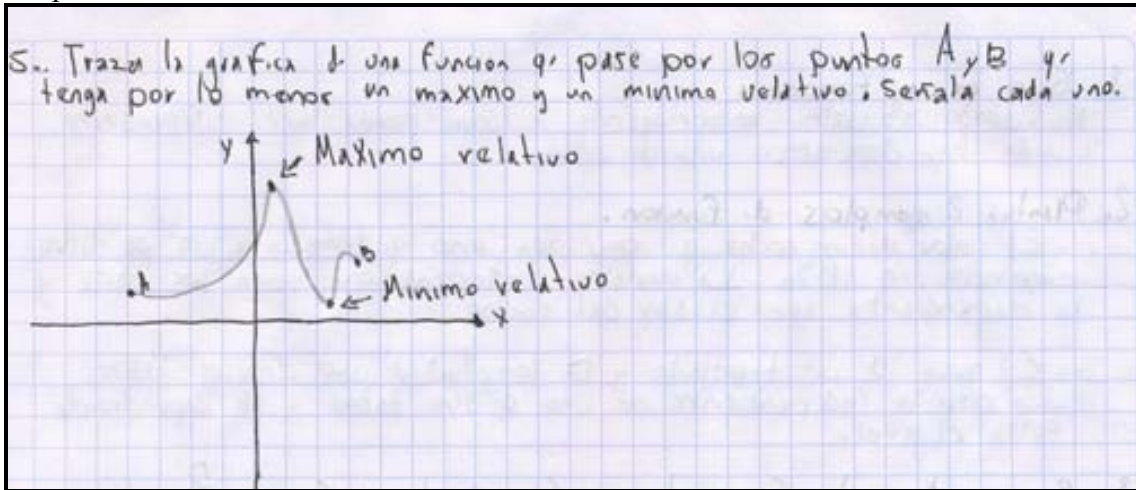 5.. Traza la grafica d una funcion q' pase por los puntos A y B y q'
tenga por lo menos un maximo y un minimo relativo. Señala cada uno.
y
Maximo relativo
A
B
Minimo relativo
x